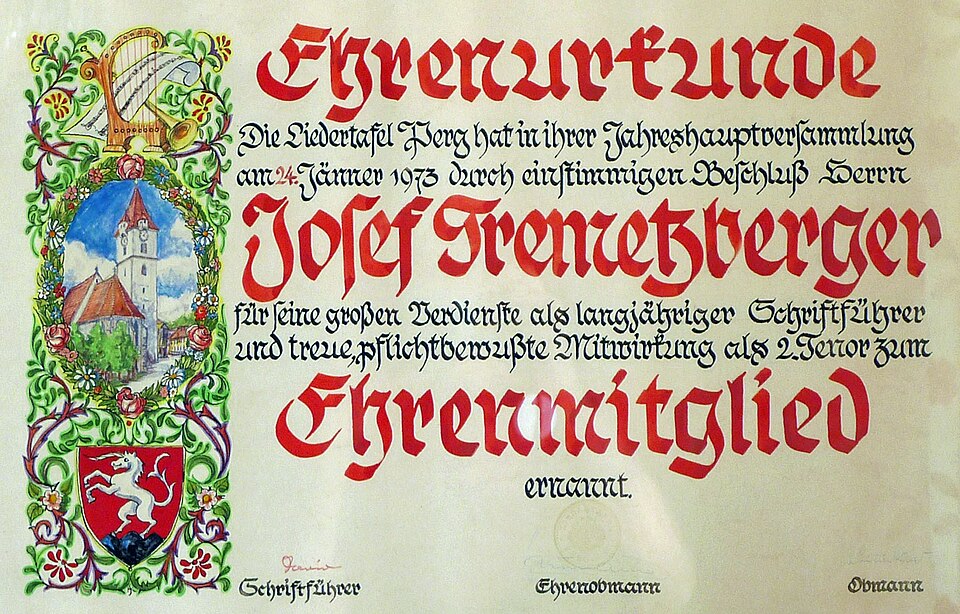 Ehrenurkunde
Die Liedertafel Perg hat in ihrer Jahreshauptversammlung
am 24. Jänner 1973 durch einstimmigen Beschluß Herrn
Josef Tremetzberger
für seine großen Verdienste als langjähriger Schriftführer
und treue, pflichtbewußte Mitwirkung als 2. Tenor zum
Ehrenmitglied
ernannt.
Schriftführer Ehrenobmann Obmann